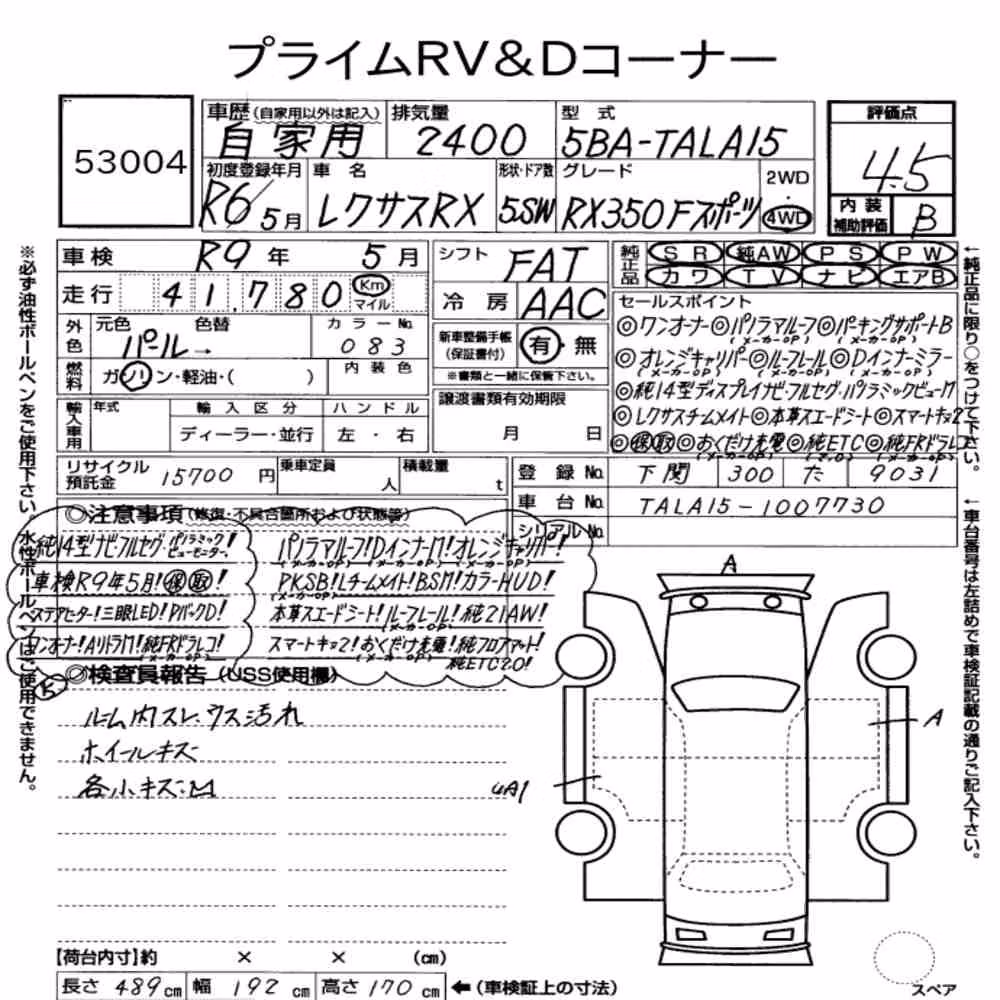 プライムRV&Dコーナー
53004
車歴(自家用以外は記入) 自家用
排気量 2400
型式 5BA-TALA15
評価点 4.5
初度登録年月 R6/5月
車名 レクサスRX
形状・ドア数 5.SW
グレード RX350 Fスポーツ
2WD
4WD
内装補助評価 B
車検 R9年 5月
走行 41,780 Km マイル
シフト FAT
冷房 AAC
純正品 SR 純AW PS PW
カワ TV ナビ エアB
外色 元色 パール→ 色替
カラーNo. 083
内装色
燃料 ガソリン・軽油・( )
新車整備手帳(保証書付) 有・無
※書類と一緒に保管下さい。
セールスポイント
◎ワンオーナー◎パノラマルーフ◎パーキングサポートB
(メーカーOP) (メーカーOP)
◎オレンジキャリパー◎ルーフレール◎Dインナーミラー
(メーカーOP) (メーカーOP) (メーカーOP)
◎純14型ディスプレイナビ・フルセグ・パノラミックビューM
◎レクサスチームメイト◎本革スエードシート◎スマートキー×2
◎保取◎おくだけ充電◎純ETC◎純FRドラレコ
(メーカーOP) (2.0) (メーカーOP)
輸入車用 年式 輸入区分 ハンドル
ディーラー・並行 左・右
譲渡書類有効期限
月 日
リサイクル預託金 15700円
乗車定員 人
積載量 t
登録No. 下関 300 た 9031
車台No. TALA15-1007730
シリアルNo.
◎注意事項(修復・不具合箇所および状態等)
純14型ナビ!フルセグ・パノラミックビューモニター!
パノラマルーフ!DインナーM!オレンジキャリパー!
車検R9年5月!保取!
PKSB!Lチームメイト!BSM!カラーHUD!
ステアヒーター!三眼LED!PバックD!
本革スエードシート!ルーフレール!純21AW!
(メーカーOP)
ワンオーナー!AハイトラM!純FRドラレコ!
(メーカーOP)
スマートキー×2!おくだけ充電!純フロアマット!
(メーカーOP)
純ETC2.0!
◎検査員報告(USS使用欄)
ルーム内スレ・ウス汚れ
ホイールキズ
各小キズ凹
A
A
A1
【荷台内寸】約 × × (cm)
長さ 489cm 幅 192cm 高さ 170cm ←(車検証上の寸法)
スペア
※必ず油性ボールペンをご使用下さい。水性ボールペンはご使用できません。
←純正品に限り○をつけて下さい。
←車台番号は左詰めで車検証記載の通りご記入下さい。